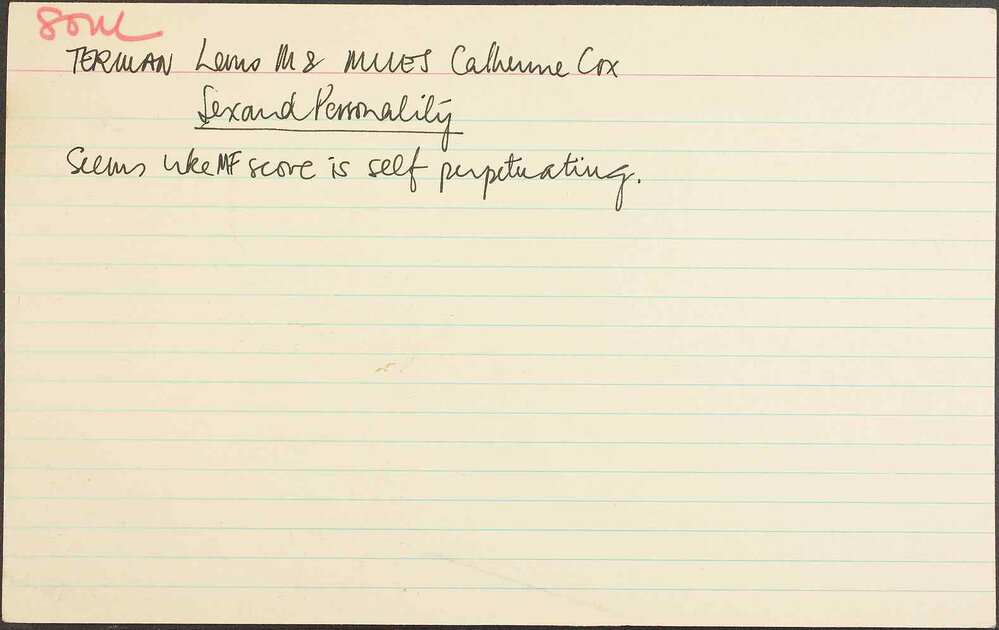 SOUL
TERMAN Lewis M & MILES Catherine Cox
Sex and Personality
Seems like MF score is self perpetuating.